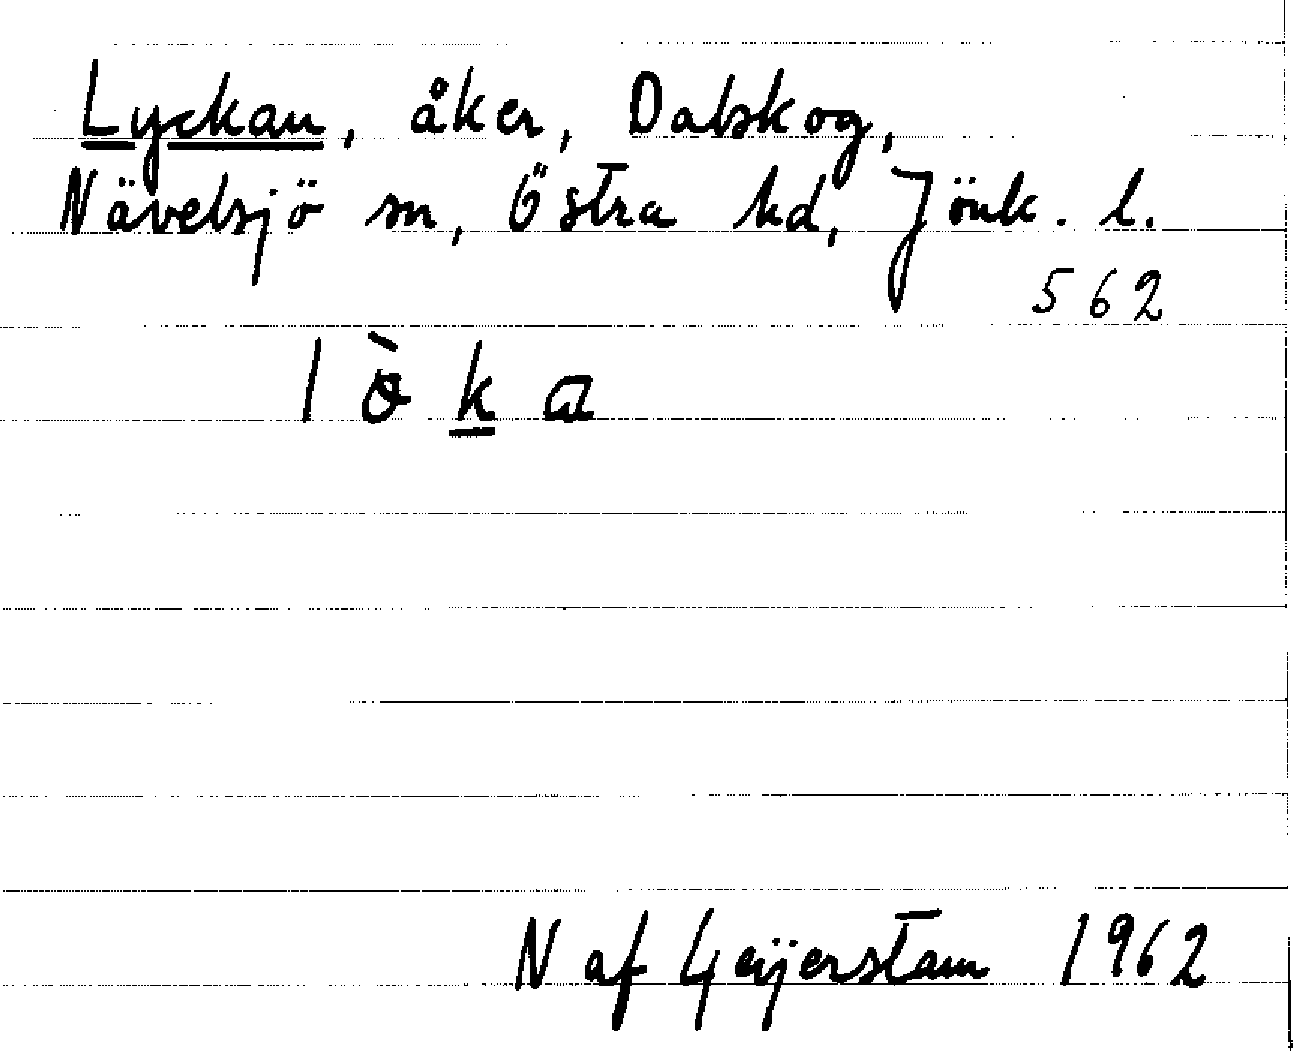 Lyckan, åker, Dalskog,
Nävelsjö sn, Östra hd, Jönk. l.
562
N af Geijerstam 1962